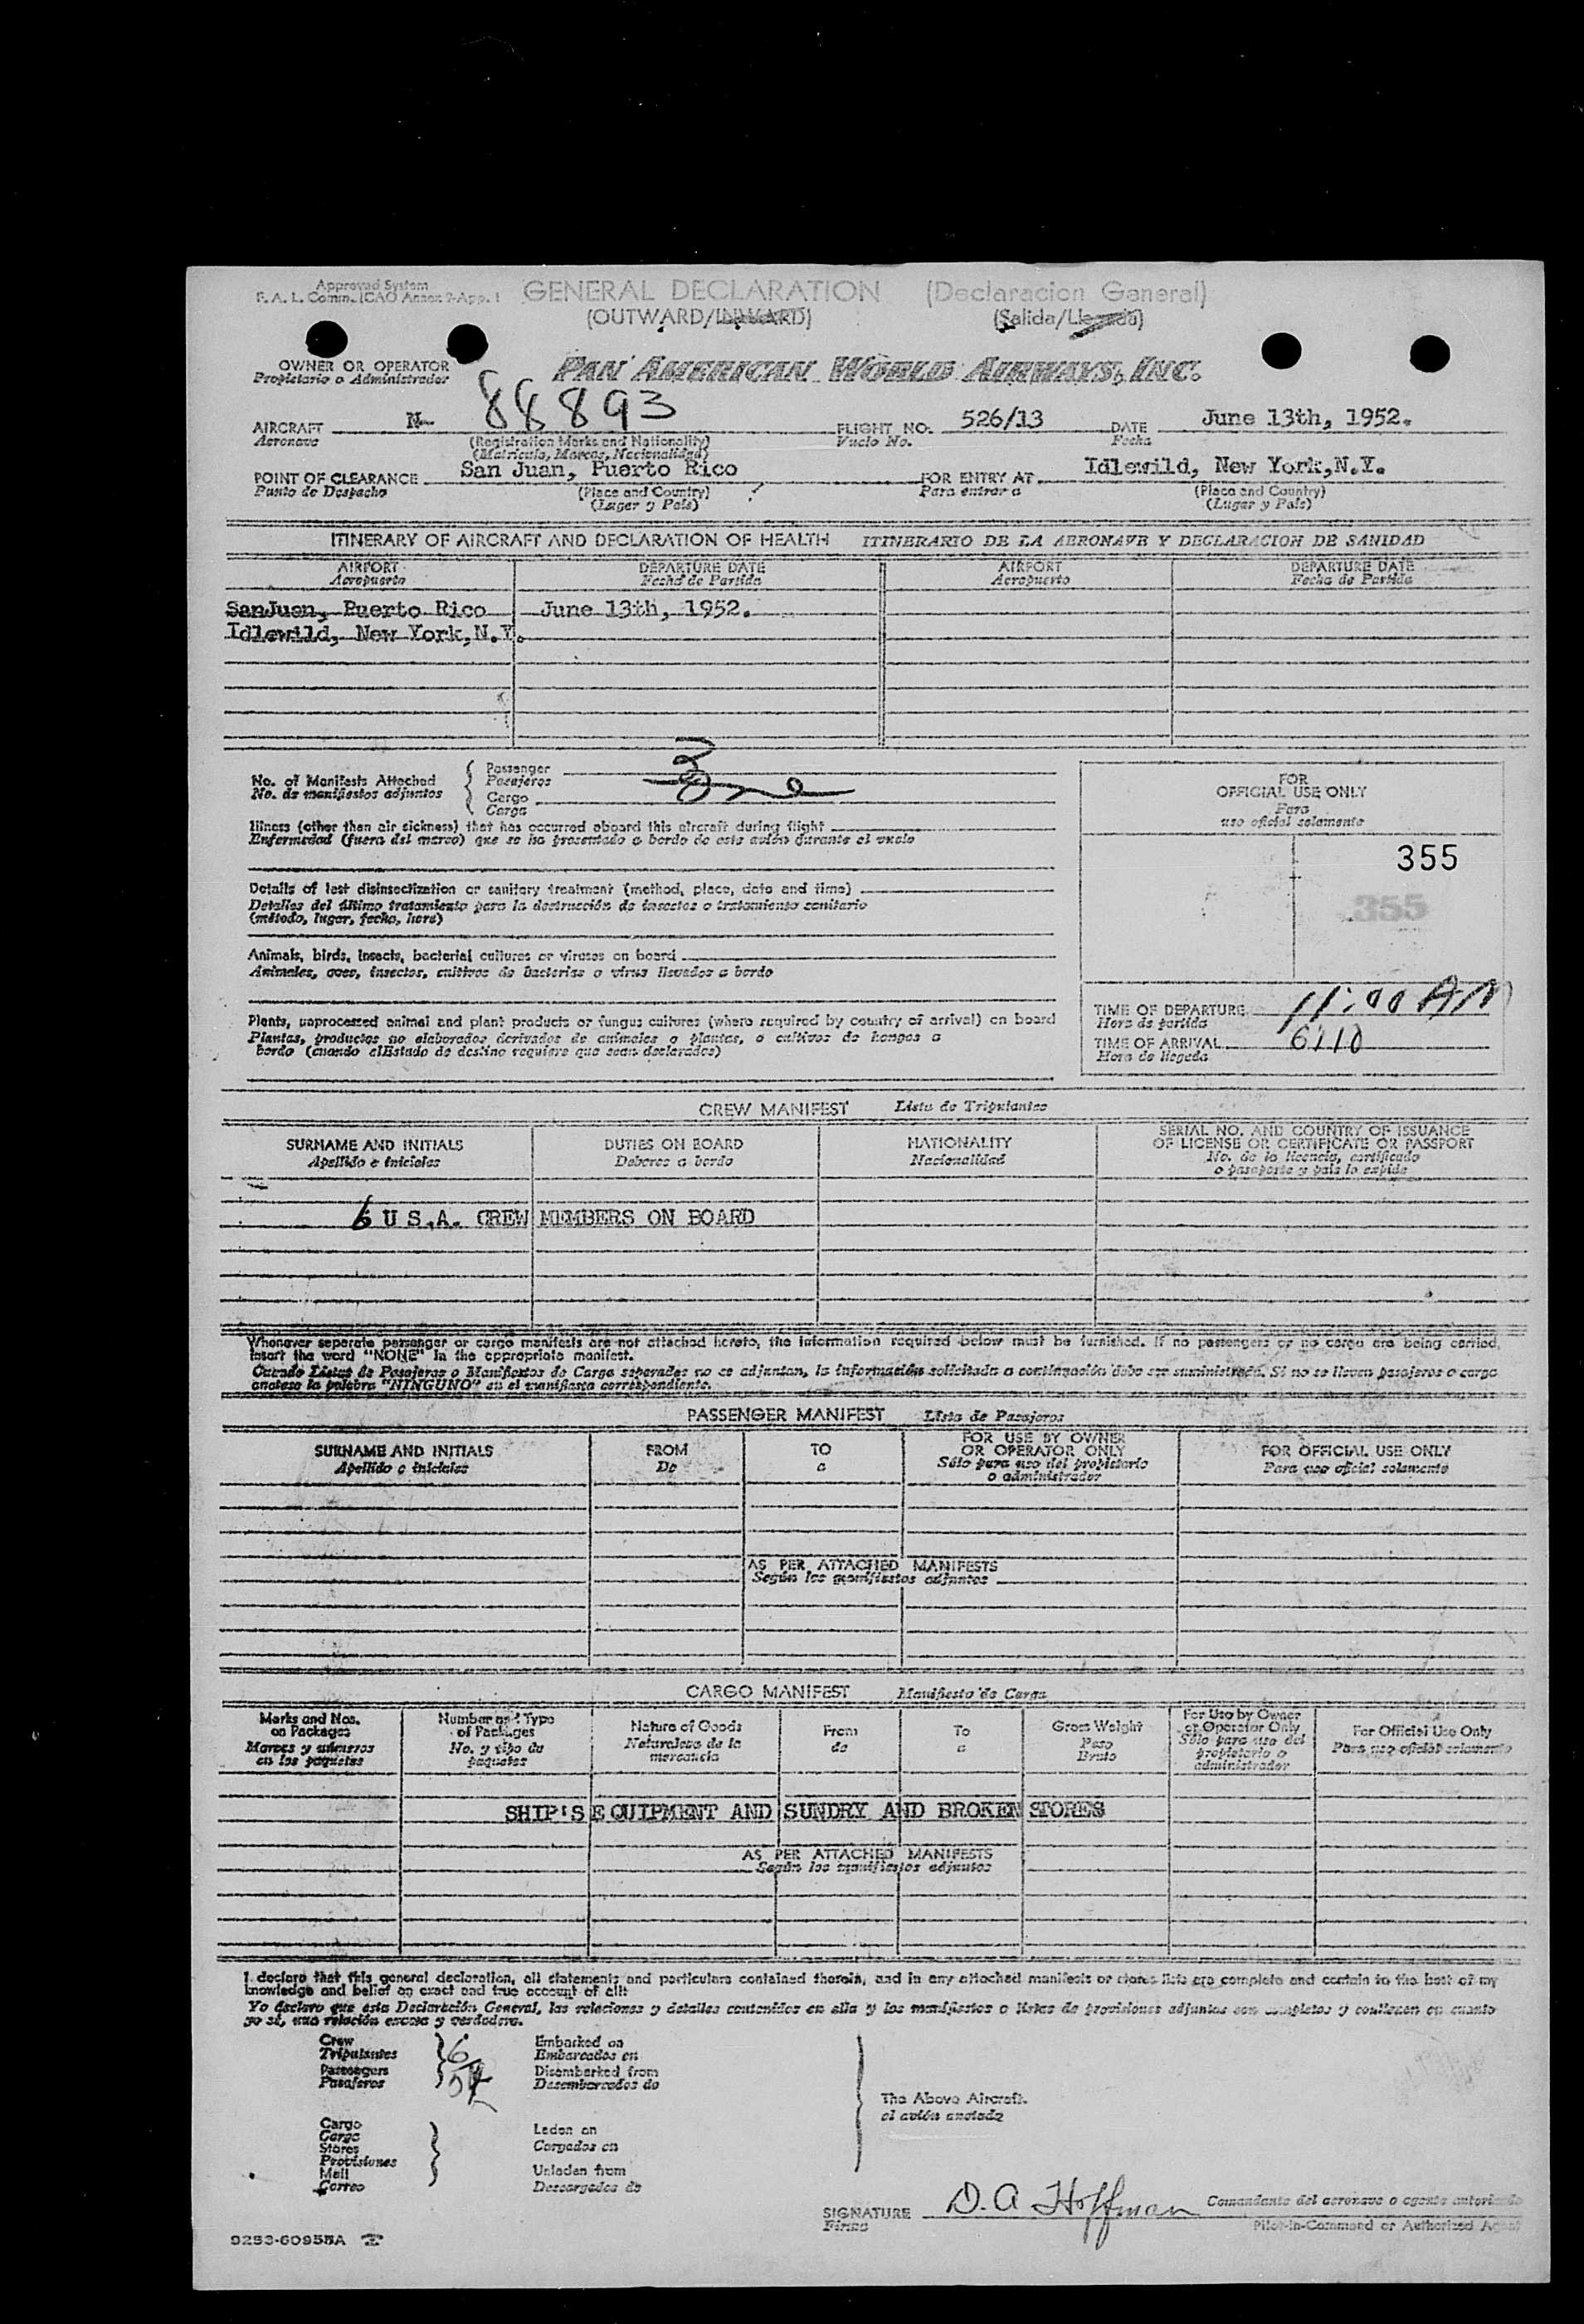 Approved System
F. A. L. Comm. ICAO Annex 9-App. 1
GENERAL DECLARATION (Declaracion General)
(OUTWARD/INWARD) (Salida/Llegada)
OWNER OR OPERATOR
Propietario o Administrador
PAN AMERICAN WORLD AIRWAYS, INC.
AIRCRAFT N- 88893 FLIGHT NO. 526/13 DATE June 13th, 1952.
Aeronave (Registration Marks and Nationality) Vuelo No. Fecha
(Matricula, Marcas, Nacionalidad)
POINT OF CLEARANCE San Juan, Puerto Rico FOR ENTRY AT Idlewild, New York,N.Y.
Punto de Despacho (Place and Country) Para entrar a (Place and Country)
(Lugar y País) (Lugar y País)
ITINERARY OF AIRCRAFT AND DECLARATION OF HEALTH ITINERARIO DE LA AERONAVE Y DECLARACION DE SANIDAD
AIRPORT DEPARTURE DATE AIRPORT DEPARTURE DATE
Aeropuerto Fecha de Partida Aeropuerto Fecha de Partida
SanJuan, Puerto Rico June 13th, 1952.
Idlewild, New York,N.Y.
No. of Manifests Attached
No. de manifiestos adjuntos
Passenger 3
Pasajeros
Cargo
Carga
FOR
OFFICIAL USE ONLY
Para
uso oficial solamente
355
355
Illness (other than air sickness) that has occurred aboard this aircraft during flight
Enfermedad (fuera del mareo) que se ha presentado a bordo de este avión durante el vuelo
Details of last disinsectization or sanitary treatment (method, place, date and time)
Detalles del último tratamiento para la destrucción de insectos o tratamiento sanitario
(método, lugar, fecha, hora)
Animals, birds, insects, bacterial cultures or viruses on board
Animales, aves, insectos, cultivos de bacterias o virus llevados a bordo
Plants, unprocessed animal and plant products or fungus cultures (where required by country of arrival) on board
Plantas, productos no elaborados derivados de animales o plantas, o cultivos de hongos a
bordo (cuando elEstado de destino requiere que sean declarados)
TIME OF DEPARTURE 11:00 AM
Hora de partida
TIME OF ARRIVAL 6:10
Hora de llegada
CREW MANIFEST Lista de Tripulantes
SURNAME AND INITIALS DUTIES ON BOARD NATIONALITY SERIAL NO. AND COUNTRY OF ISSUANCE
OF LICENSE OR CERTIFICATE OR PASSPORT
Apellido e iniciales Deberes a bordo Nacionalidad No. de la licencia, certificado
o pasaporte y país lo expide
6 U S.A. CREW MEMBERS ON BOARD
Whenever separate passenger or cargo manifests are not attached hereto, the information required below must be furnished. If no passengers or no cargo are being carried,
insert the word "NONE" in the appropriate manifest.
Cuando Listas de Pasajeros o Manifiestos de Carga separados no se adjuntan, la información solicitada a continuación debe ser suministrada. Si no se llevan pasajeros o carga
anótese la palabra "NINGUNO" en el manifiesto correspondiente.
PASSENGER MANIFEST Lista de Pasajeros
SURNAME AND INITIALS FROM TO FOR USE BY OWNER
OR OPERATOR ONLY FOR OFFICIAL USE ONLY
Apellido e iniciales De a Sólo para uso del propietario
o administrador Para uso oficial solamente
AS PER ATTACHED MANIFESTS
Según los manifiestos adjuntos
CARGO MANIFEST Manifiesto de Carga
Marks and Nos.
on Packages
Marcas y números
en los paquetes
Number and Type
of Packages
No. y tipo de
paquetes
Nature of Goods
Naturaleza de la
mercancía
From
de
To
a
Gross Weight
Peso
Bruto
For Use by Owner
or Operator Only
Sólo para uso del
propietario o
administrador
For Official Use Only
Para uso oficial solamente
SHIP'S EQUIPMENT AND SUNDRY AND BROKEN STORES
AS PER ATTACHED MANIFESTS
Según los manifiestos adjuntos
I declare that this general declaration, all statements and particulars contained therein, and in any attached manifests or stores lists are complete and contain to the best of my
knowledge and belief an exact and true account of all:
Yo declaro que esta Declaración General, las relaciones y detalles contenidos en ella y los manifiestos o listas de provisiones adjuntos son completos y contienen en cuanto
yo sé, una relación exacta y verdadera.
Crew 6 Embarked on
Tripulantes Embarcados en
Passengers Disembarked from
Pasajeros Desembarcados de
The Above Aircraft.
el avión anotado
Cargo Laden on
Carga Cargados en
Stores
Provisiones
Mail Unladen from
Correo Descargados de
SIGNATURE D. A Hoffman Comandante del aeronave o agente autorizado
Firma Pilot-in-Command or Authorized Agent
9253-60955A